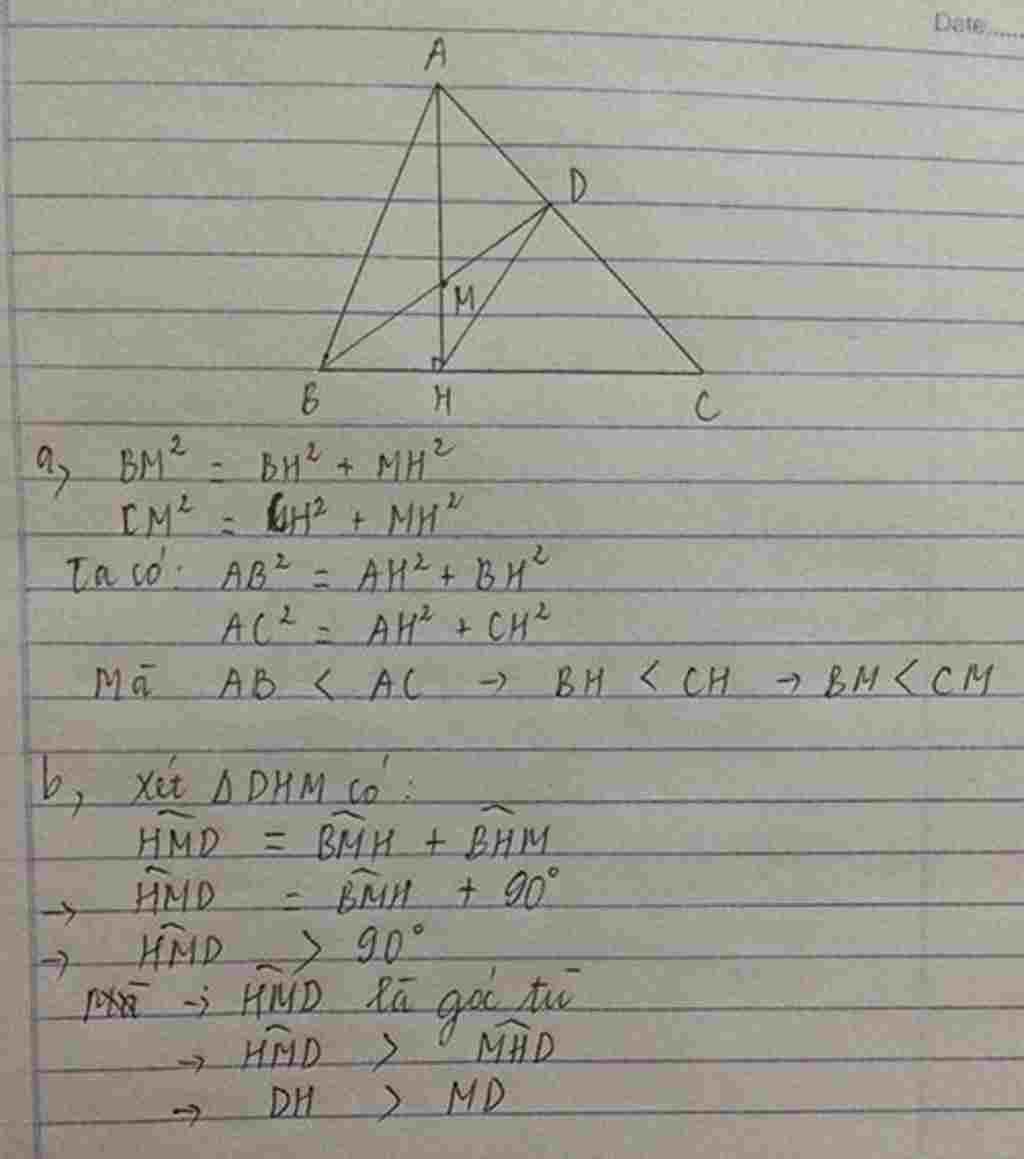 Date......
A
D
M
B H C
a, BM² = BH² + MH²
CM² = CH² + MH²
Ta có: AB² = AH² + BH²
AC² = AH² + CH²
Mà AB < AC → BH < CH → BM < CM
b, Xét Δ DHM có:
\widehat{HMD} = \widehat{BMH} + \widehat{BHM}
→ \widehat{HMD} = \widehat{BMH} + 90°
→ \widehat{HMD} > 90°
→ \widehat{HMD} là góc tù
→ \widehat{HMD} > \widehat{MHD}
→ DH > MD